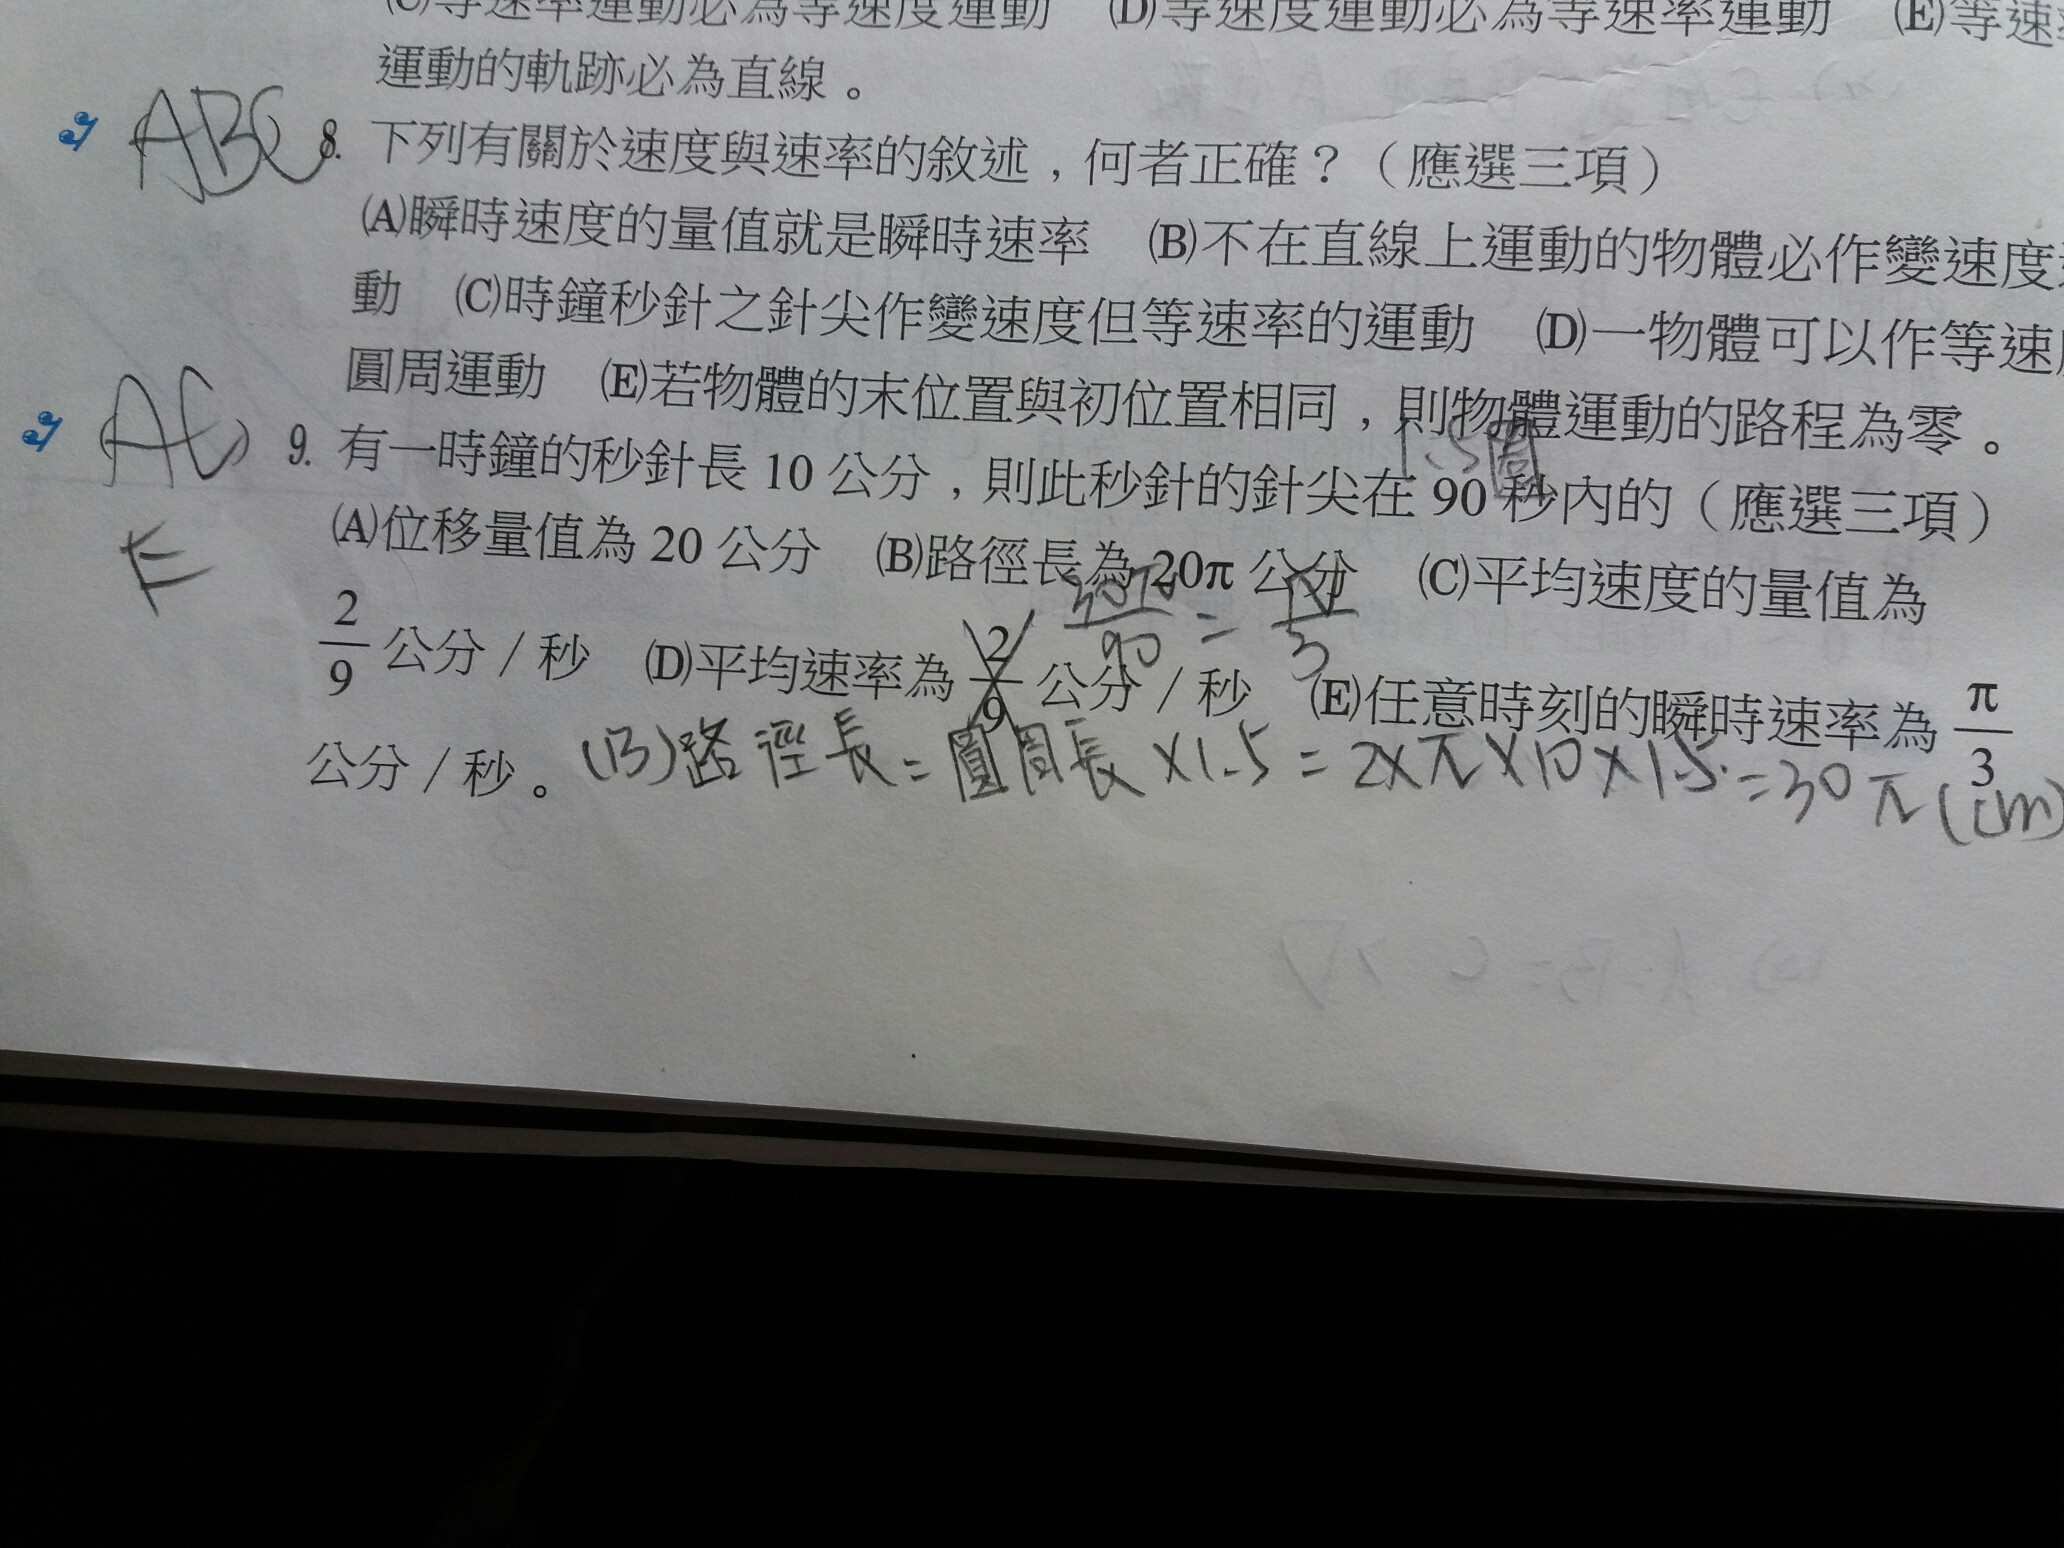 (C)等速率運動必為等速度運動　(D)等速度運動必為等速率運動　(E)等速
運動的軌跡必為直線。
ABC 8. 下列有關於速度與速率的敘述，何者正確？（應選三項）
(A)瞬時速度的量值就是瞬時速率　(B)不在直線上運動的物體必作變速度
動　(C)時鐘秒針之針尖作變速度但等速率的運動　(D)一物體可以作等速
圓周運動　(E)若物體的末位置與初位置相同，則物體運動的路程為零。
1.5圈
AC 9. 有一時鐘的秒針長 10 公分，則此秒針的針尖在 90 秒內的（應選三項）
E
(A)位移量值為 20 公分　(B)路徑長為 20π 公分　(C)平均速度的量值為
30π/90 = π/3
2/9 公分／秒　(D)平均速率為 2/9 公分／秒　(E)任意時刻的瞬時速率為 π/3
公分／秒。 (B)路徑長=圓周長×1.5=2×π×10×1.5=30π(cm)